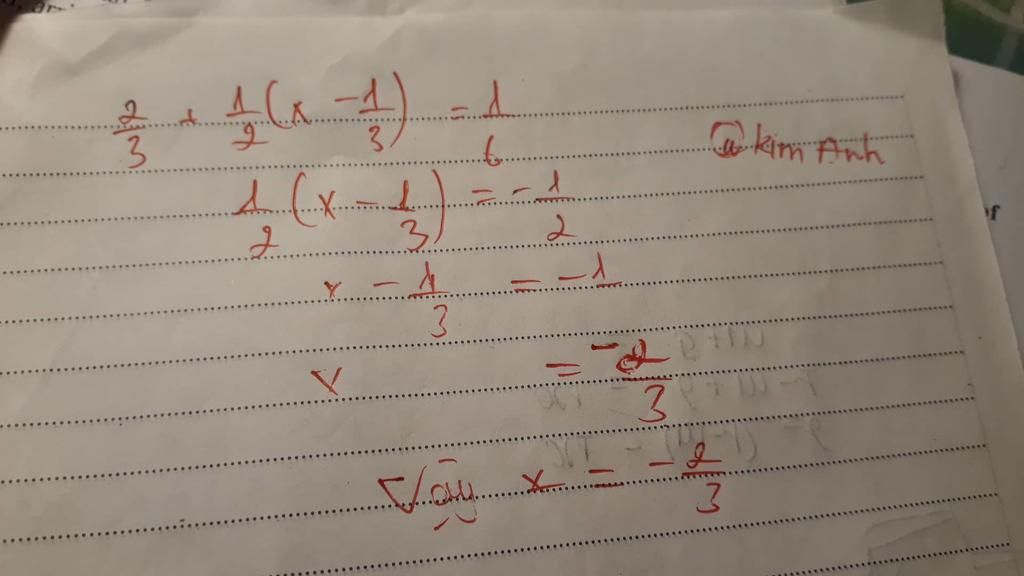 2/3 + 1/2 (x - 1/3) = 1/6
@ kim Anh
1/2 (x - 1/3) = - 1/2
x - 1/3 = - 1
x = - 2/3
Vậy x = - 2/3